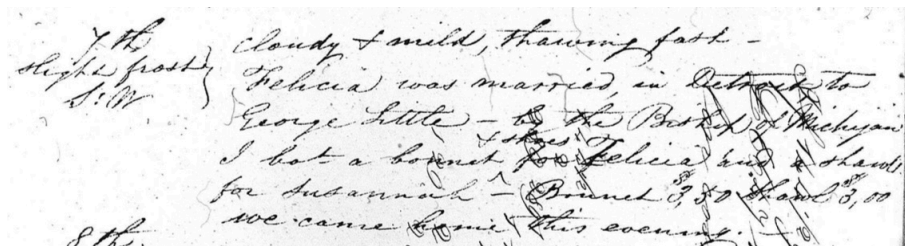 7th
slight frost
S. W
cloudy & mild, thawing fast -
Felicia was married, in Detroit to
George Little - by the Bishop of Michigan
& shoes
I bot a bonnet for Felicia and a shawl
for Susannah - Bonnet $3,50 Shawl $3,00
we came home this evening.
8th